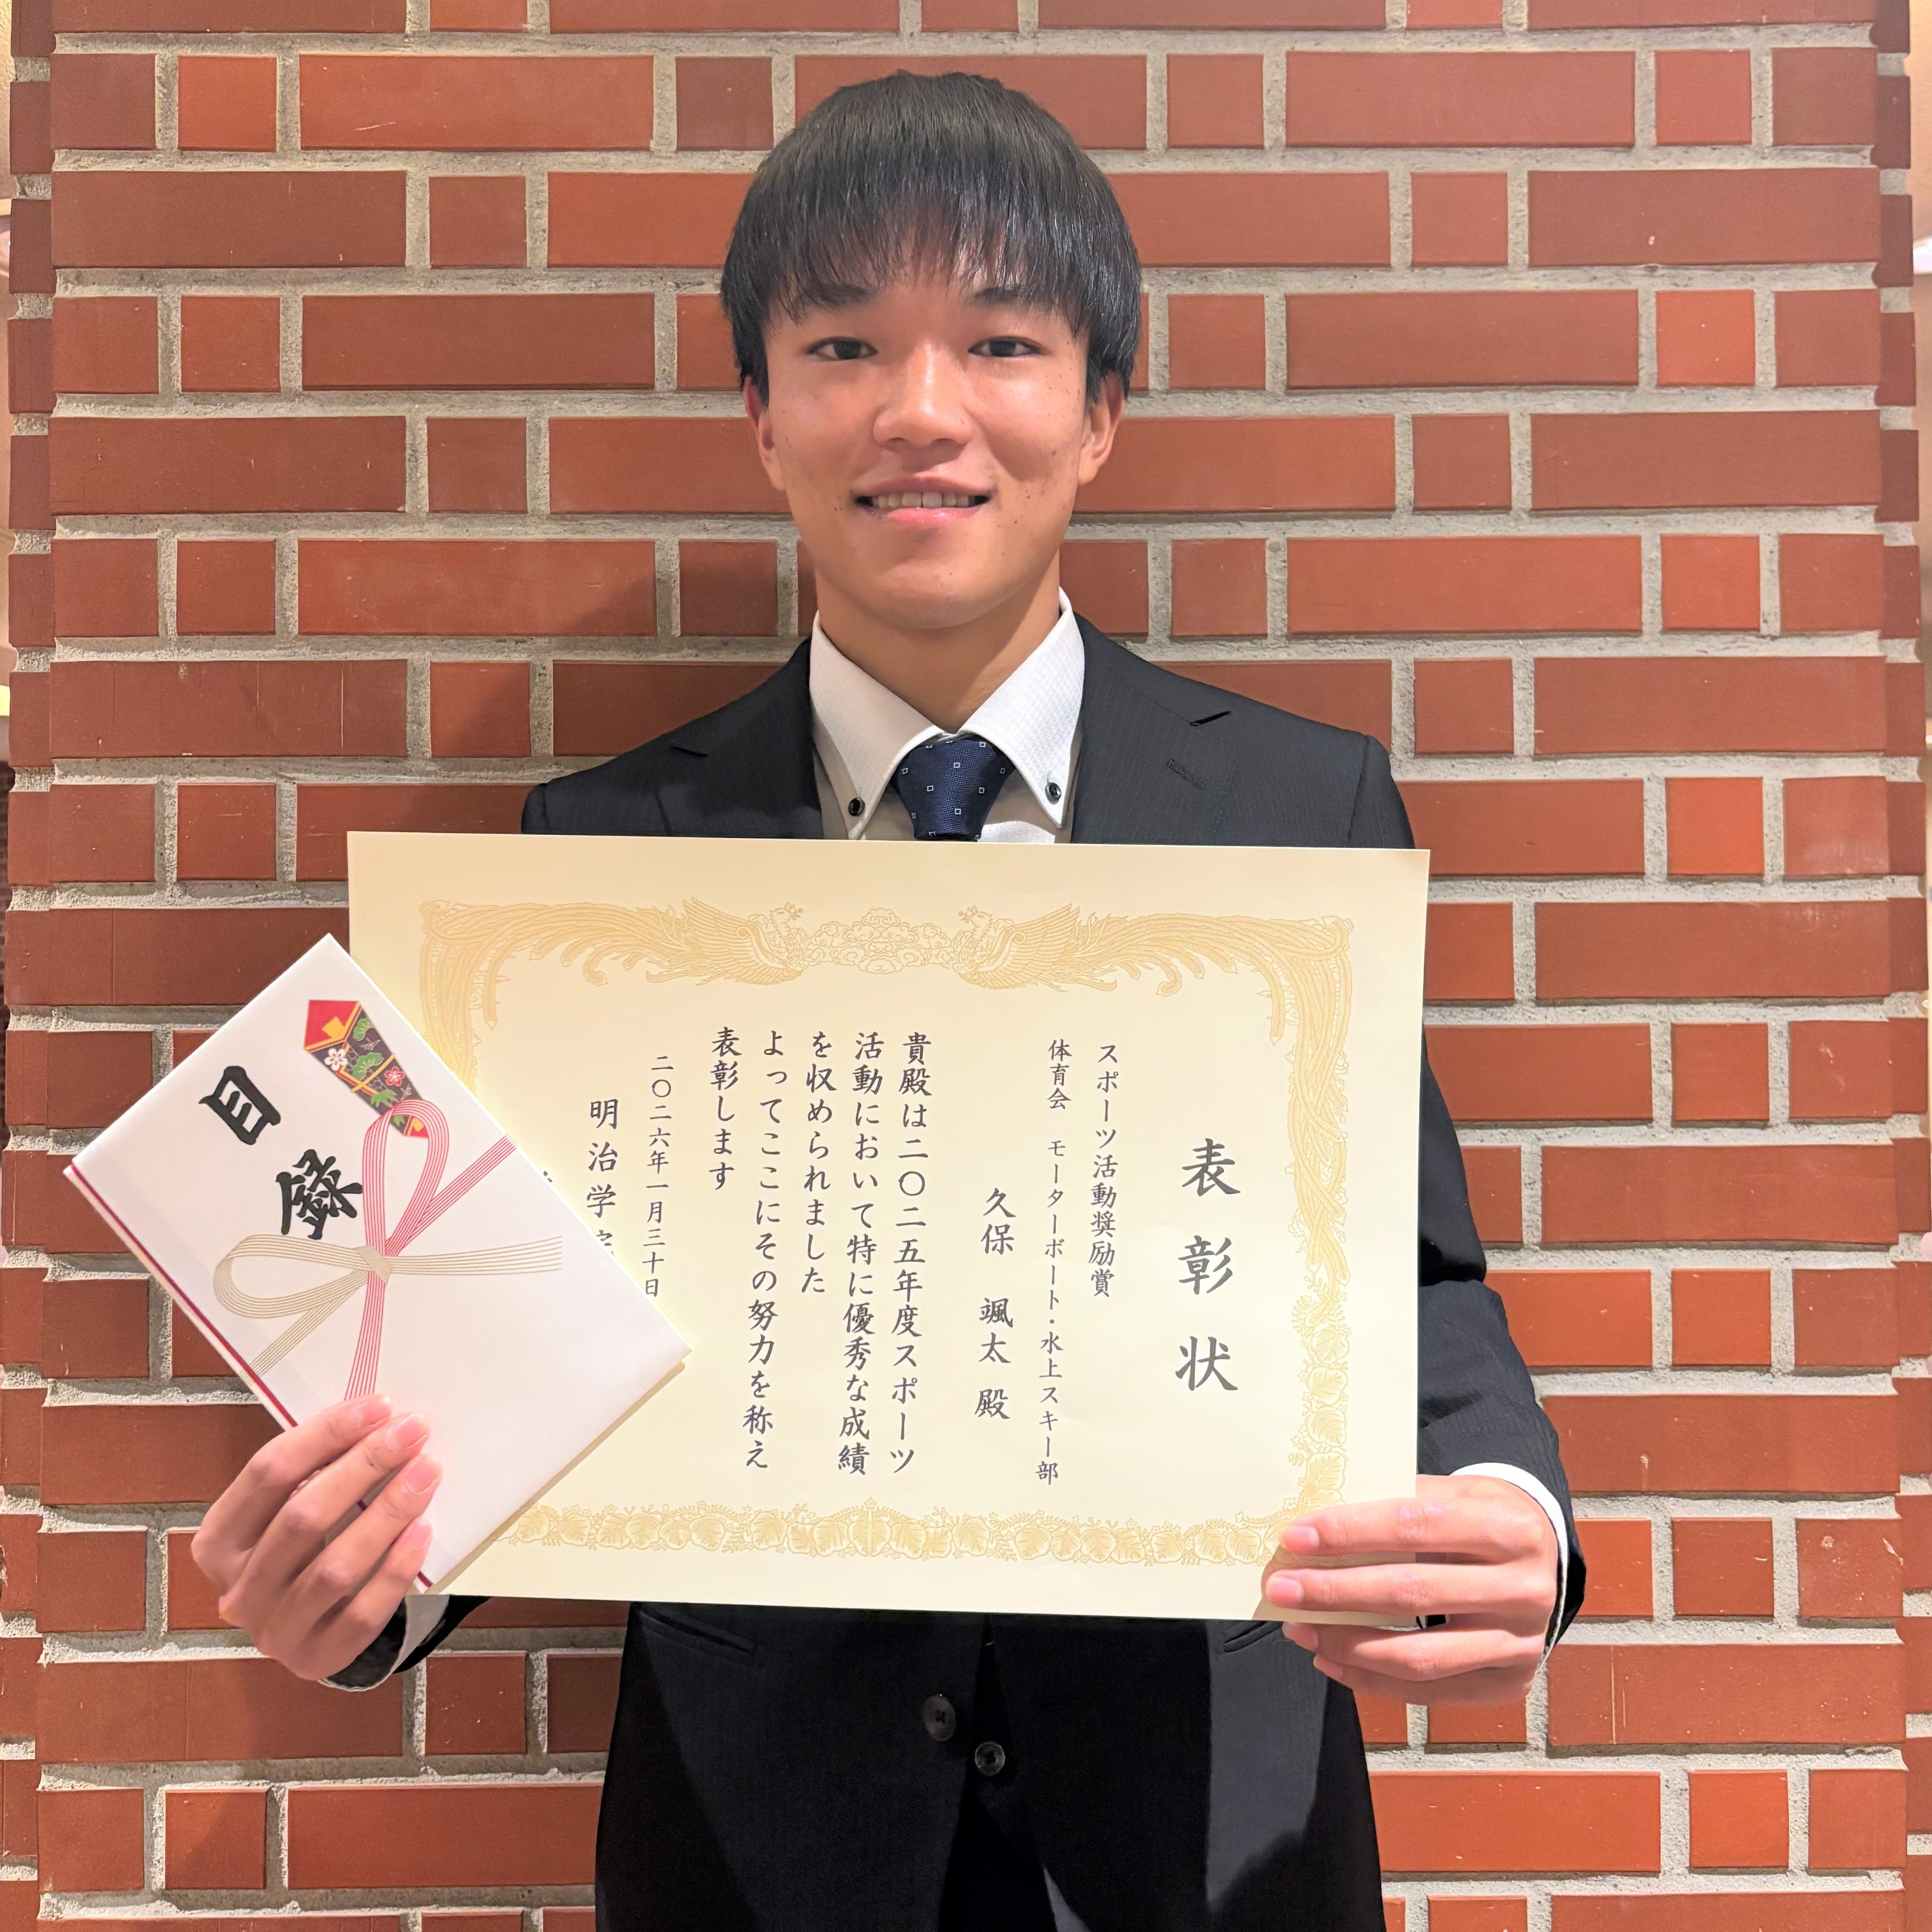 表彰状
スポーツ活動奨励賞
体育会 モーターボート・水上スキー部
久保 颯太 殿
貴殿は二〇二五年度スポーツ
活動において特に優秀な成績
を収められました
よってここにその努力を称え
表彰します
二〇二六年一月三十日
明治学
目録